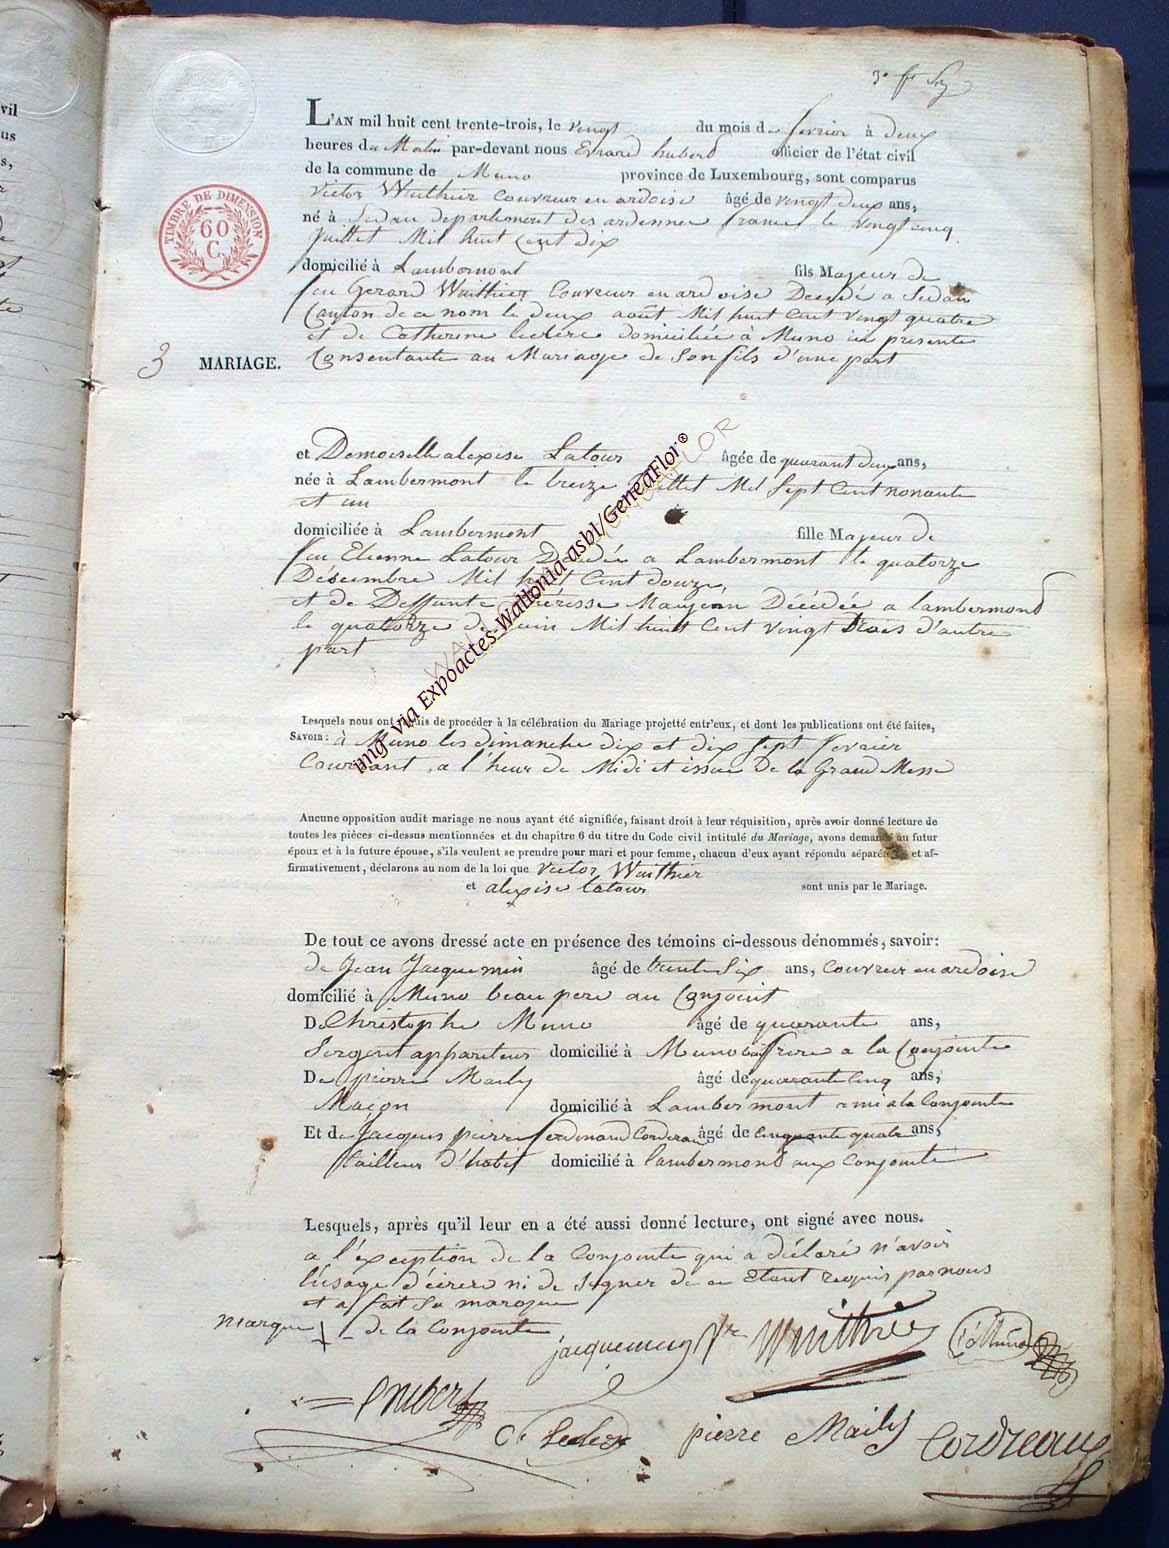 L'AN mil huit cent trente-trois, le vingt du mois de fevrier à deux
heures du Matin par-devant nous Evrard hubert officier de l'état civil
de la commune de Muno province de Luxembourg, sont comparus
victor Wuithier Couvreur en ardoise âgé de vingt deux ans,
né à Sedan departement des ardennes france le vingt cinq
Juillet Mil huit Cent dix
domicilié à Lambermont fils Majeur de
feu Gerard Wuithier Couvreur en ardoise Decedé a Sedan
Canton de ce nom le deux août Mil huit Cent vingt quatre
et de Catherine leclere domiciliée à Muno ici presente
3 MARIAGE. Consentante au Mariage de Son fils d'une part
et Demoiselle alexise Latour âgée de quarant deux ans,
née à Lambermont le treize Juillet Mil Sept Cent nonante
et un
domiciliée à Lambermont fille Majeur de
feu Etienne Latour Decedée a Lambermont le quatorze
Décembre Mil huit Cent douze
et de Deffunte Théresse Maujean Décédée a lambermond
le quatorze de Juin Mil huit Cent vingt Trois d'autre
part
Lesquels nous ont requis de procéder à la célébration du Mariage projetté entr'eux, et dont les publications ont été faites,
SAVOIR: à Muno les dimanche dix et dix Sept fevrier
Courant, a l'heur de Midi et issue De la Grand Messe
Aucune opposition audit mariage ne nous ayant été signifiée, faisant droit à leur réquisition, après avoir donné lecture de
toutes les pièces ci-dessus mentionnées et du chapitre 6 du titre du Code civil intitulé du Mariage, avons demandé au futur
époux et à la future épouse, s'ils veulent se prendre pour mari et pour femme, chacun d'eux ayant répondu séparém et af-
firmativement, déclarons au nom de la loi que victor Wuithier
et alexise latour sont unis par le Mariage.
De tout ce avons dressé acte en présence des témoins ci-dessous dénommés, savoir:
de Jean Jacquemin âgé de trente Six ans, Couvreur en ardoise
domicilié à Muno beau pere au Conjoint
De Christophe Muno âgé de quarante ans,
Sergent appariteur domicilié à Muno beau frere a la Conjointe
De pierre Maily âgé de quarante cinq ans,
Maçon domicilié à Lambermont ami a la Conjointe
Et de Jacques pierre ferdinand Cordreaux âgé de Cinquante quatre ans,
tailleur d'habit domicilié à lambermond aux Conjointe
Lesquels, après qu'il leur en a été aussi donné lecture, ont signé avec nous.
a l'éxception de la Conjointe qui a déclaré n'avoir
l'usage d'écrire ni de Signer de ce Etant requis par nous
et a fait Sa marque
marque de la Conjointe
jacquemin Vr Wuithier C. Muno
E hubert C. leclere pierre Maily Cordreaux
TIMBRE DE DIMENSION
60
C.
img via Expoactes-Wallonia-asbl/GeneaFlor®